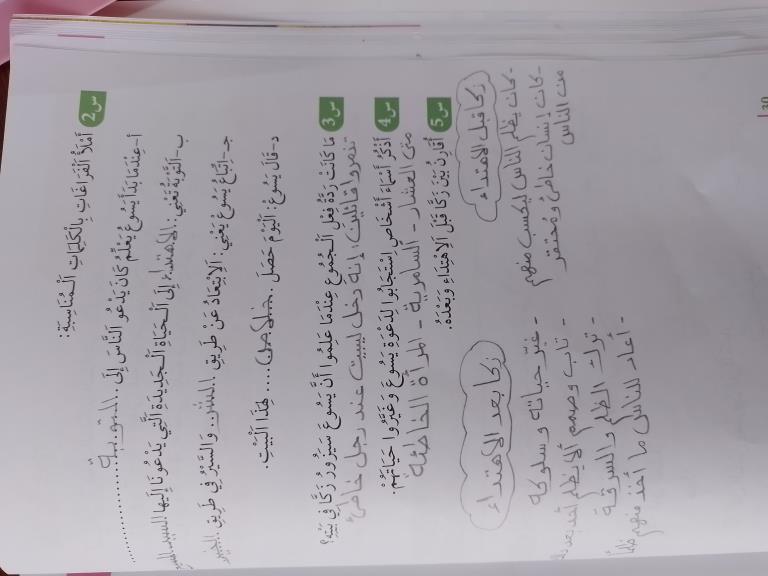 س2 أَمْلَأُ ٱلْفَرَاغَاتِ بِالْكَلِمَاتِ ٱلْمُنَاسِبَةِ:
أ-عِنْدَمَا بَدَأَ يَسُوعُ يُعَلِّمُ كَانَ يَدْعُو ٱلنَّاسَ إِلَى .. التوبة
ب-اَلتَّوْبَةُ تَعْنِي: الاهتداء إِلَى ٱلْحَيَاةِ ٱلْجَدِيدَةِ ٱلَّتِي يَدْعُونَا إِلَيْهَا السيد
جـ-اِتِّبَاعُ يَسُوعَ يَعْنِي: اَلِابْتِعَادُ عَنْ طَرِيقِ .. الشر .. وَالسَّيْرُ فِي طَرِيقِ .. الخير
د-قَالَ يَسُوعُ: اَلْيَوْمَ حَصَلَ .. خلاص .... هٰذَا ٱلْبَيْتِ.
س3 مَا كَانَتْ رَدَّةُ فِعْلِ ٱلْجُمُوعِ عِنْدَمَا عَلِمُوا أَنَّ يَسُوعَ سَيَزُورُ زَكَّا فِي بَيْتِهِ؟
تذمروا قائلين: إنه دخل ليبيت عند رجل خاطئ
س4 أَذْكُرُ أَسْمَاءَ أَشْخَاصٍ ٱسْتَجَابُوا لِدَعْوَةِ يَسُوعَ وَغَيَّرُوا حَيَاتَهُمْ.
متى العشار - السامرية - المرأة الخاطئة
س5 أُقَارِنُ بَيْنَ زَكَّا قَبْلَ ٱلِاهْتِدَاءِ وَبَعْدَهُ.
زكا قبل الاهتداء
- كان يظلم الناس ليكسب منهم
- كان إنسان خاطئ ومحتقر
من الناس
زكا بعد الاهتداء
- غيّر حياته وسلوكه
- تاب وصمم ألا يظلم أحد بعد ذلك
- ترك الظلم والسرقة
- أعاد للناس ما أخذ منهم ظلماً
30